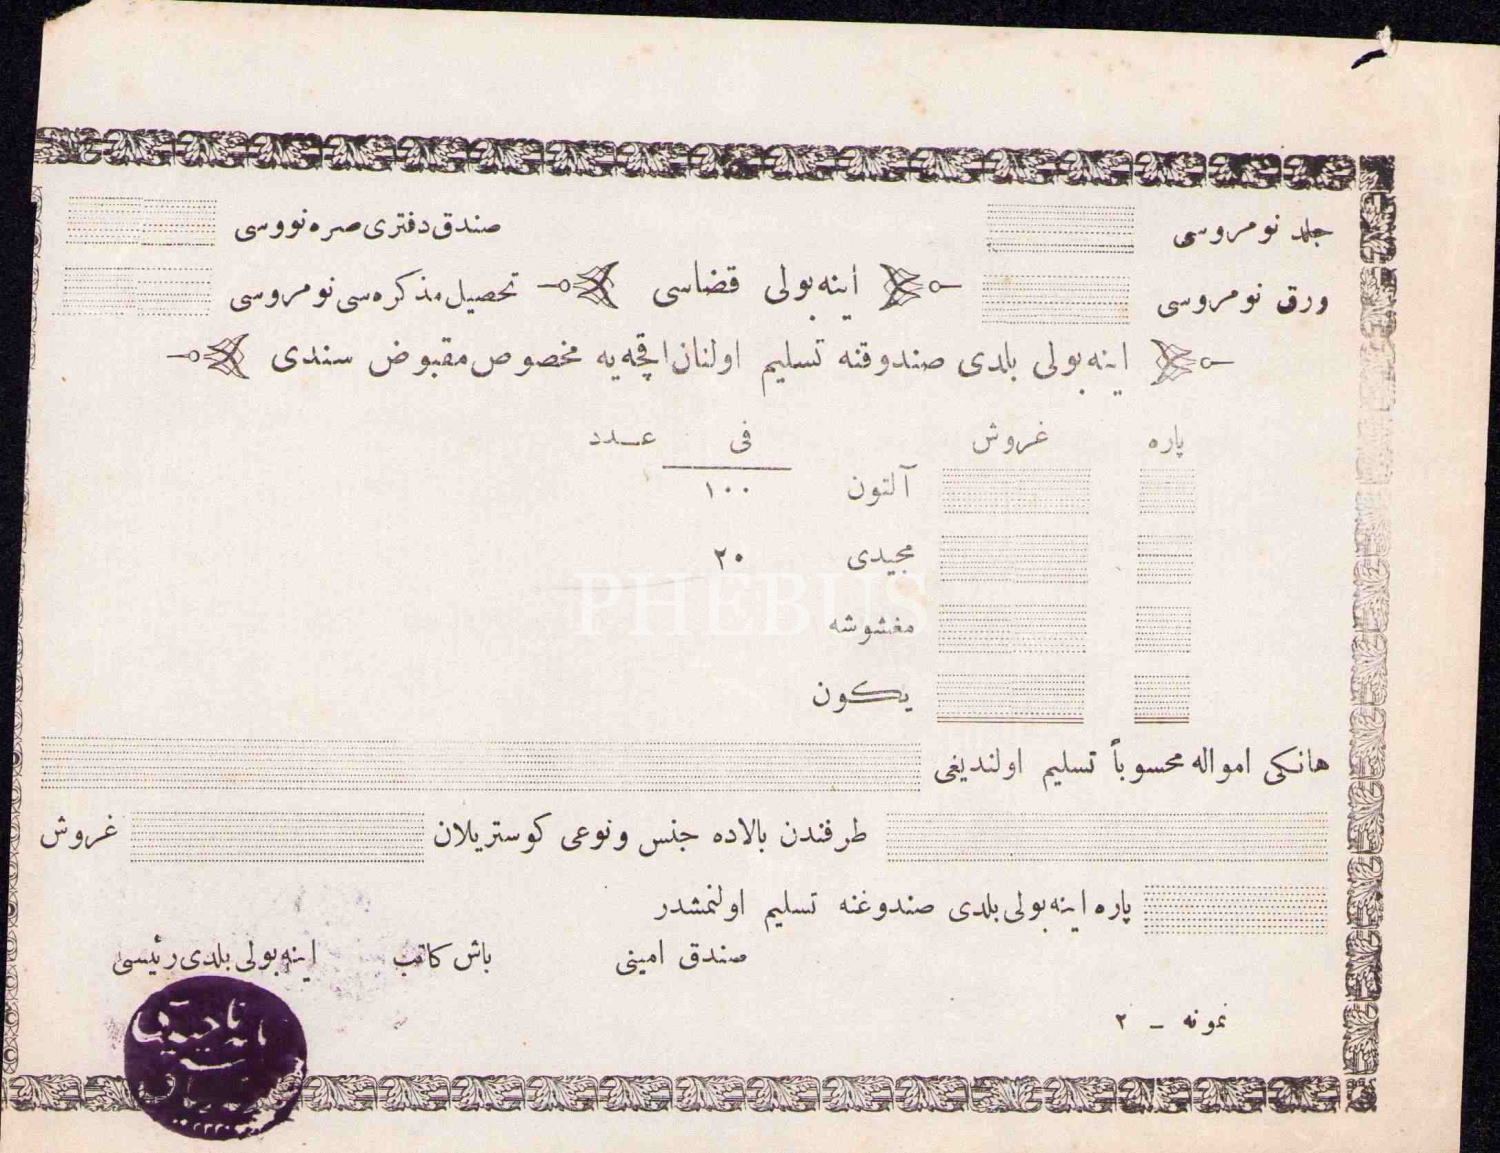 جلد نومروسی صندق دفتری صره نووسی
ورق نومروسی اینه‌بولی قضاسی تحصیل مذكره‌سی نومروسی
اینه‌بولی بلدی صندوقنه تسلیم اولنان اقچه‌یه مخصوص مقبوض سندی
پاره غروش فی عدد
آلتون ١٠٠
مجیدی ٢٠
مغشوشه
یكون
PHEBUS
هانكی امواله محسوباً تسلیم اولندیغی
طرفندن بالاده جنس و نوعی كوستریلان غروش
پاره اینه‌بولی بلدی صندوغنه تسلیم اولنمشدر
صندق امینی باش كاتب اینه‌بولی بلدی رئیسی
نمونه - ٢